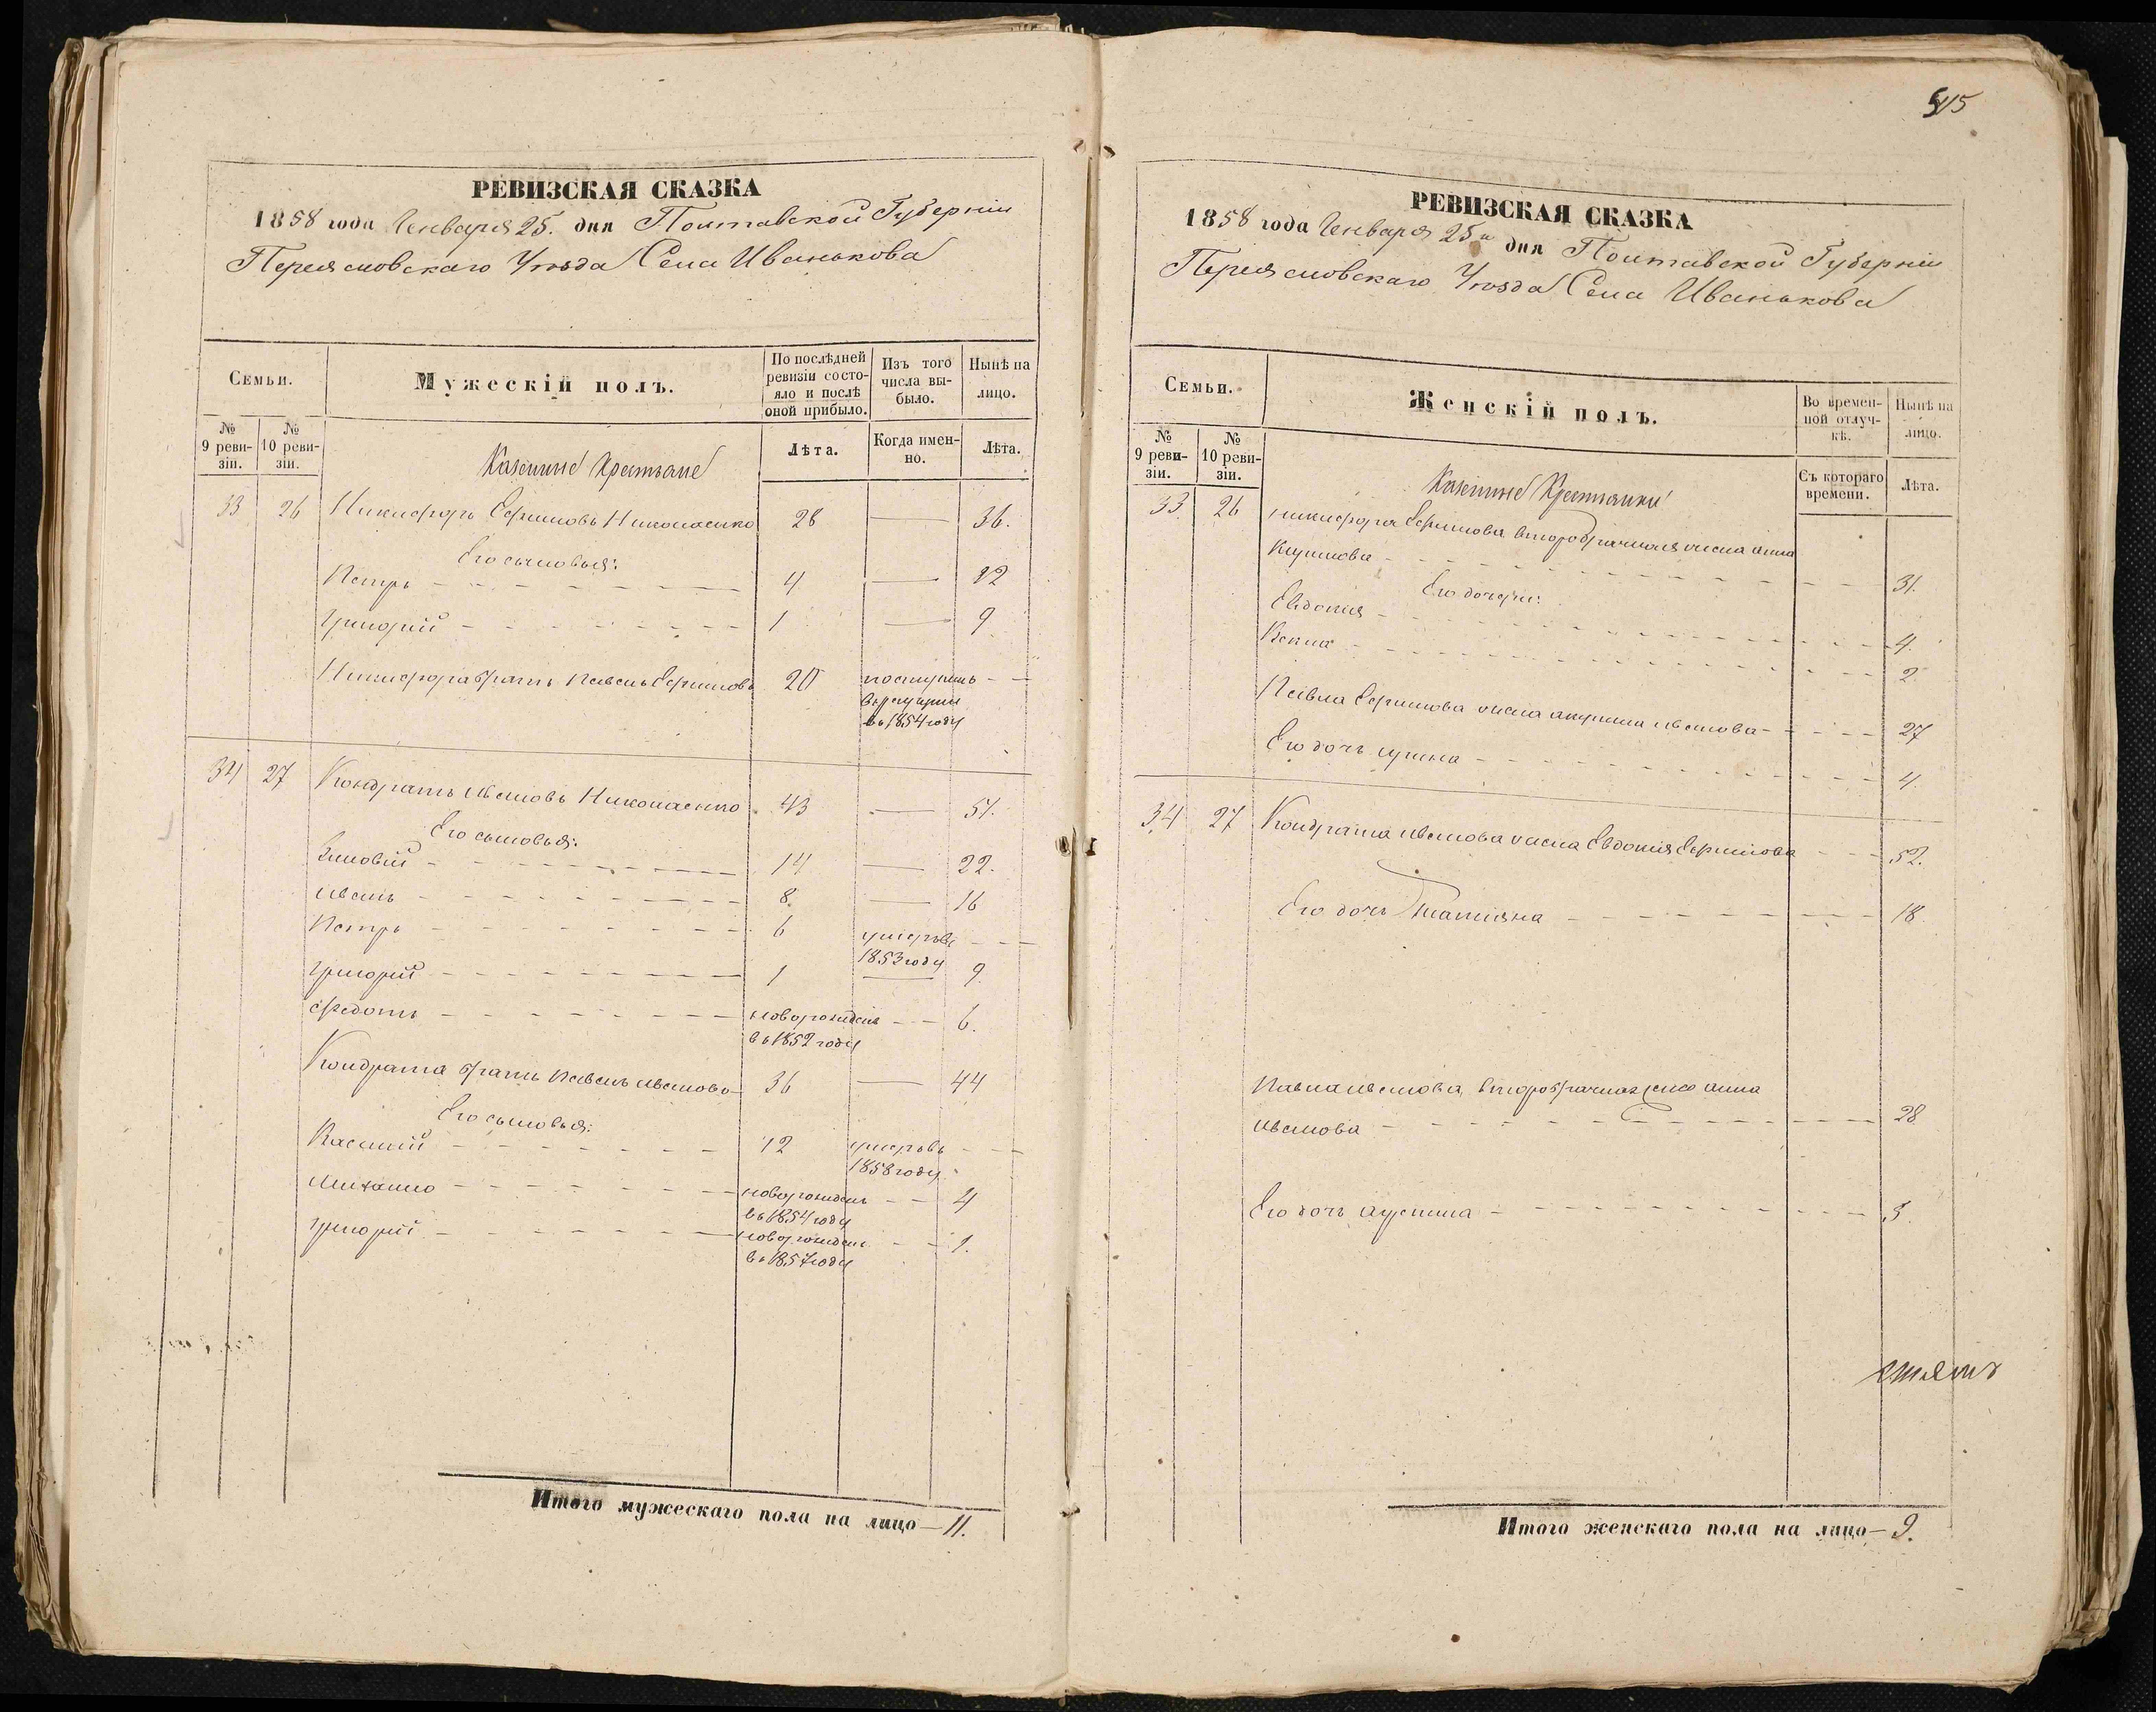 РЕВИЗСКАЯ СКАЗКА
1858 года Генваря 25. дня Полтавской Губерніи
Переясловскаго Уѣзда Села Иванькова
Семьи.
Мужескій полъ.
По послѣдней ревизіи состояло и послѣ оной прибыло.
Изъ того числа выбыло.
Нынѣ на лицо.
№ 9 ревизіи.
№ 10 ревизіи.
Казенные Крестьяне
Лѣта.
Когда именно.
Лѣта.
33 26 Никифоръ Ефимовъ Николаенко 28 — 36.
Его сыновья:
Петръ 4 — 12
Григорій 1 — 9
Никифора братъ Павелъ Ефимовъ 20 поступилъ
въ рекруты
въ 1854 году
34 27 Кондратъ Ивановъ Николаенко 43 — 51.
Его сыновья:
Зиновій 14 — 22.
Иванъ 8. — 16
Петръ 6 умеръ въ
1853 году
Григорій 1 — 9.
Федотъ новорожденъ 6.
въ 1852 году
Кондрата братъ Павелъ Ивановъ 36 — 44
Его сыновья:
Касьянъ 12 умеръ въ
1858 году
Михайло новорожденъ 4
въ 1854 году
Григорій новорожденъ 1.
въ 1857 году
Итого мужескаго пола на лицо — 11.
РЕВИЗСКАЯ СКАЗКА
1858 года Генваря 25 дня Полтавской Губерніи
Переясловскаго Уѣзда Села Иванькова
Семьи.
Женскій полъ.
Во временной отлучкѣ.
Нынѣ на лицо.
№ 9 ревизіи.
№ 10 ревизіи.
Казенные Крестьянки
Съ котораго времени.
Лѣта.
33 26 Никифора Ефимова второбрачная жена Анна
31.
Его дочери:
Евдокія 4.
2.
Павла Ефимова жена Акулина Иванова 27
Его дочь Ирина 4.
34 27 Кондрата Иванова жена Евдокія Ефимова 52.
Его дочь Татіяна 18.
Павла Иванова второбрачная жена Анна
Иванова 28
Его дочь 3.
Итого женскаго пола на лицо — 9.